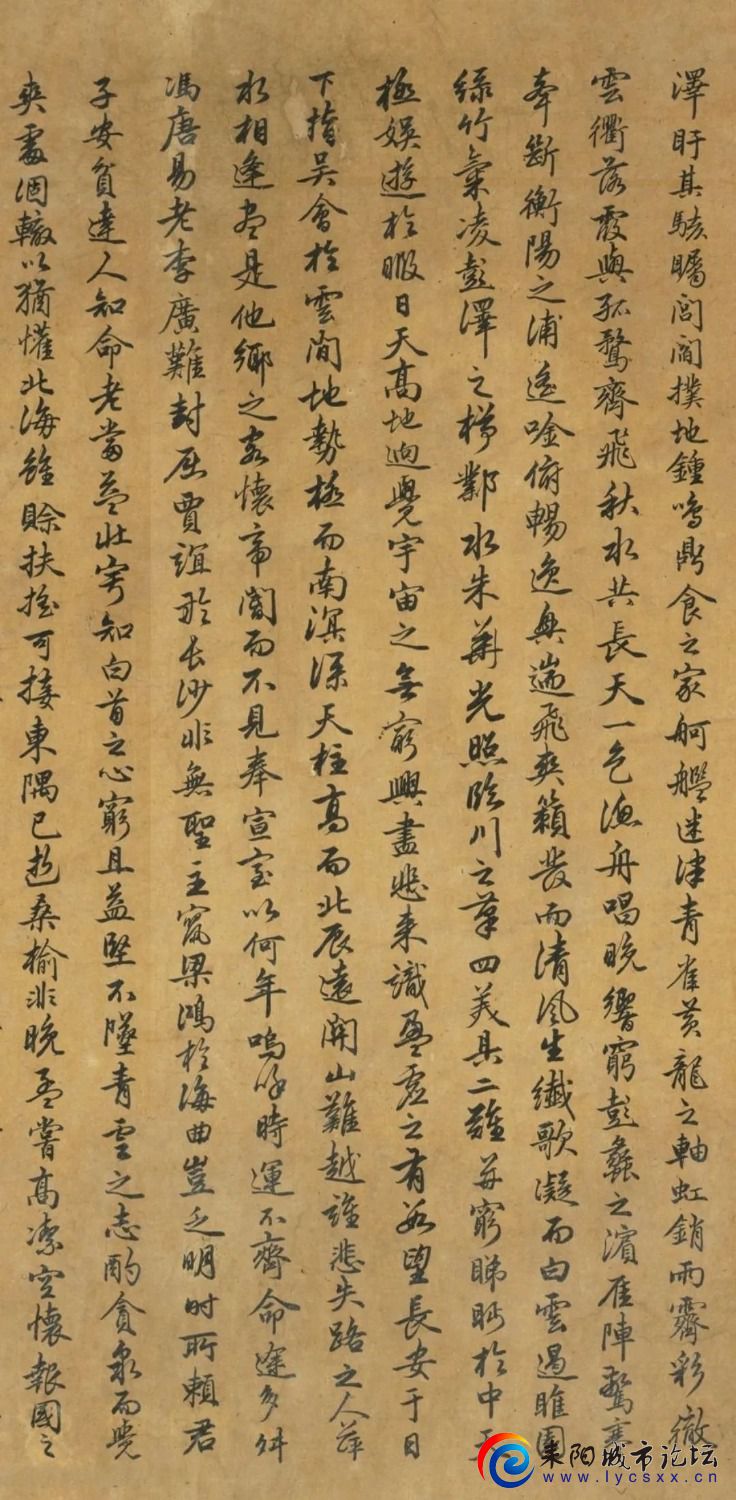 澤盱其駭矚閭閻撲地鍾鳴鼎食之家舸艦迷津青雀黃龍之軸虹銷雨霽彩徹
雲衢落霞與孤鶩齊飛秋水共長天一色漁舟唱晚響窮彭蠡之濱雁陣驚寒
牽斷衡陽之浦遙唫俯暢逸興遄飛爽籟發而清風生纖歌凝而白雲遏睢園
綠竹氣凌彭澤之樽鄴水朱華光照臨川之筆四美具二難並窮睇眄於中天
極娛遊於暇日天高地迥覺宇宙之無窮興盡悲來識盈虛之有數望長安于日
下指吳會於雲間地勢極而南溟深天柱高而北辰遠關山難越誰悲失路之人萍
水相逢盡是他鄉之客懷帝閽而不見奉宣室以何年嗚呼時運不齊命途多舛
馮唐易老李廣難封屈賈誼於長沙非無聖主竄梁鴻於海曲豈乏明時所賴君
子安貧達人知命老當益壯寧知白首之心窮且益堅不墜青雲之志酌貪泉而覺
爽處涸轍以猶懽北海雖賒扶搖可接東隅已逝桑榆非晚孟嘗高潔空懷報國之
耒阳城市论坛
www.lycsxx.cn